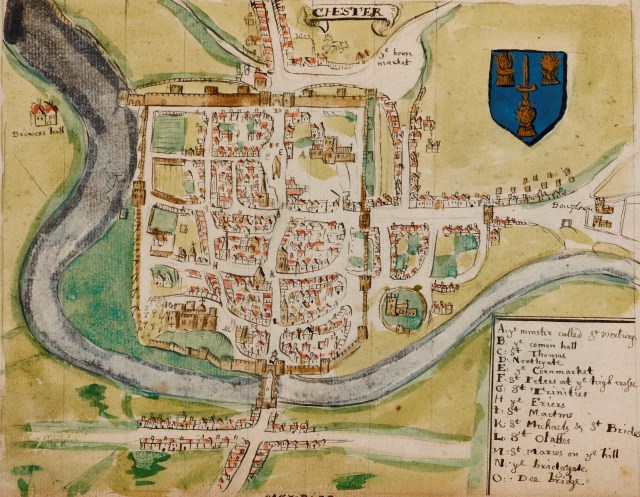 CHESTER
ye horse
market
Brewers hall
Boughton
A: ye minster called St Werburgs
B. ye comon hall
C: St Thomas
D Northgate
E. ye Cornmarket
F. St Peters at ye high crosse
G: St Trinities
H ye Friers
I: St Martins
K: St Michaels & St Brides
L: St Olaffes
M: St Maries on ye hill
N: ye bridggate
O: Dee bridge